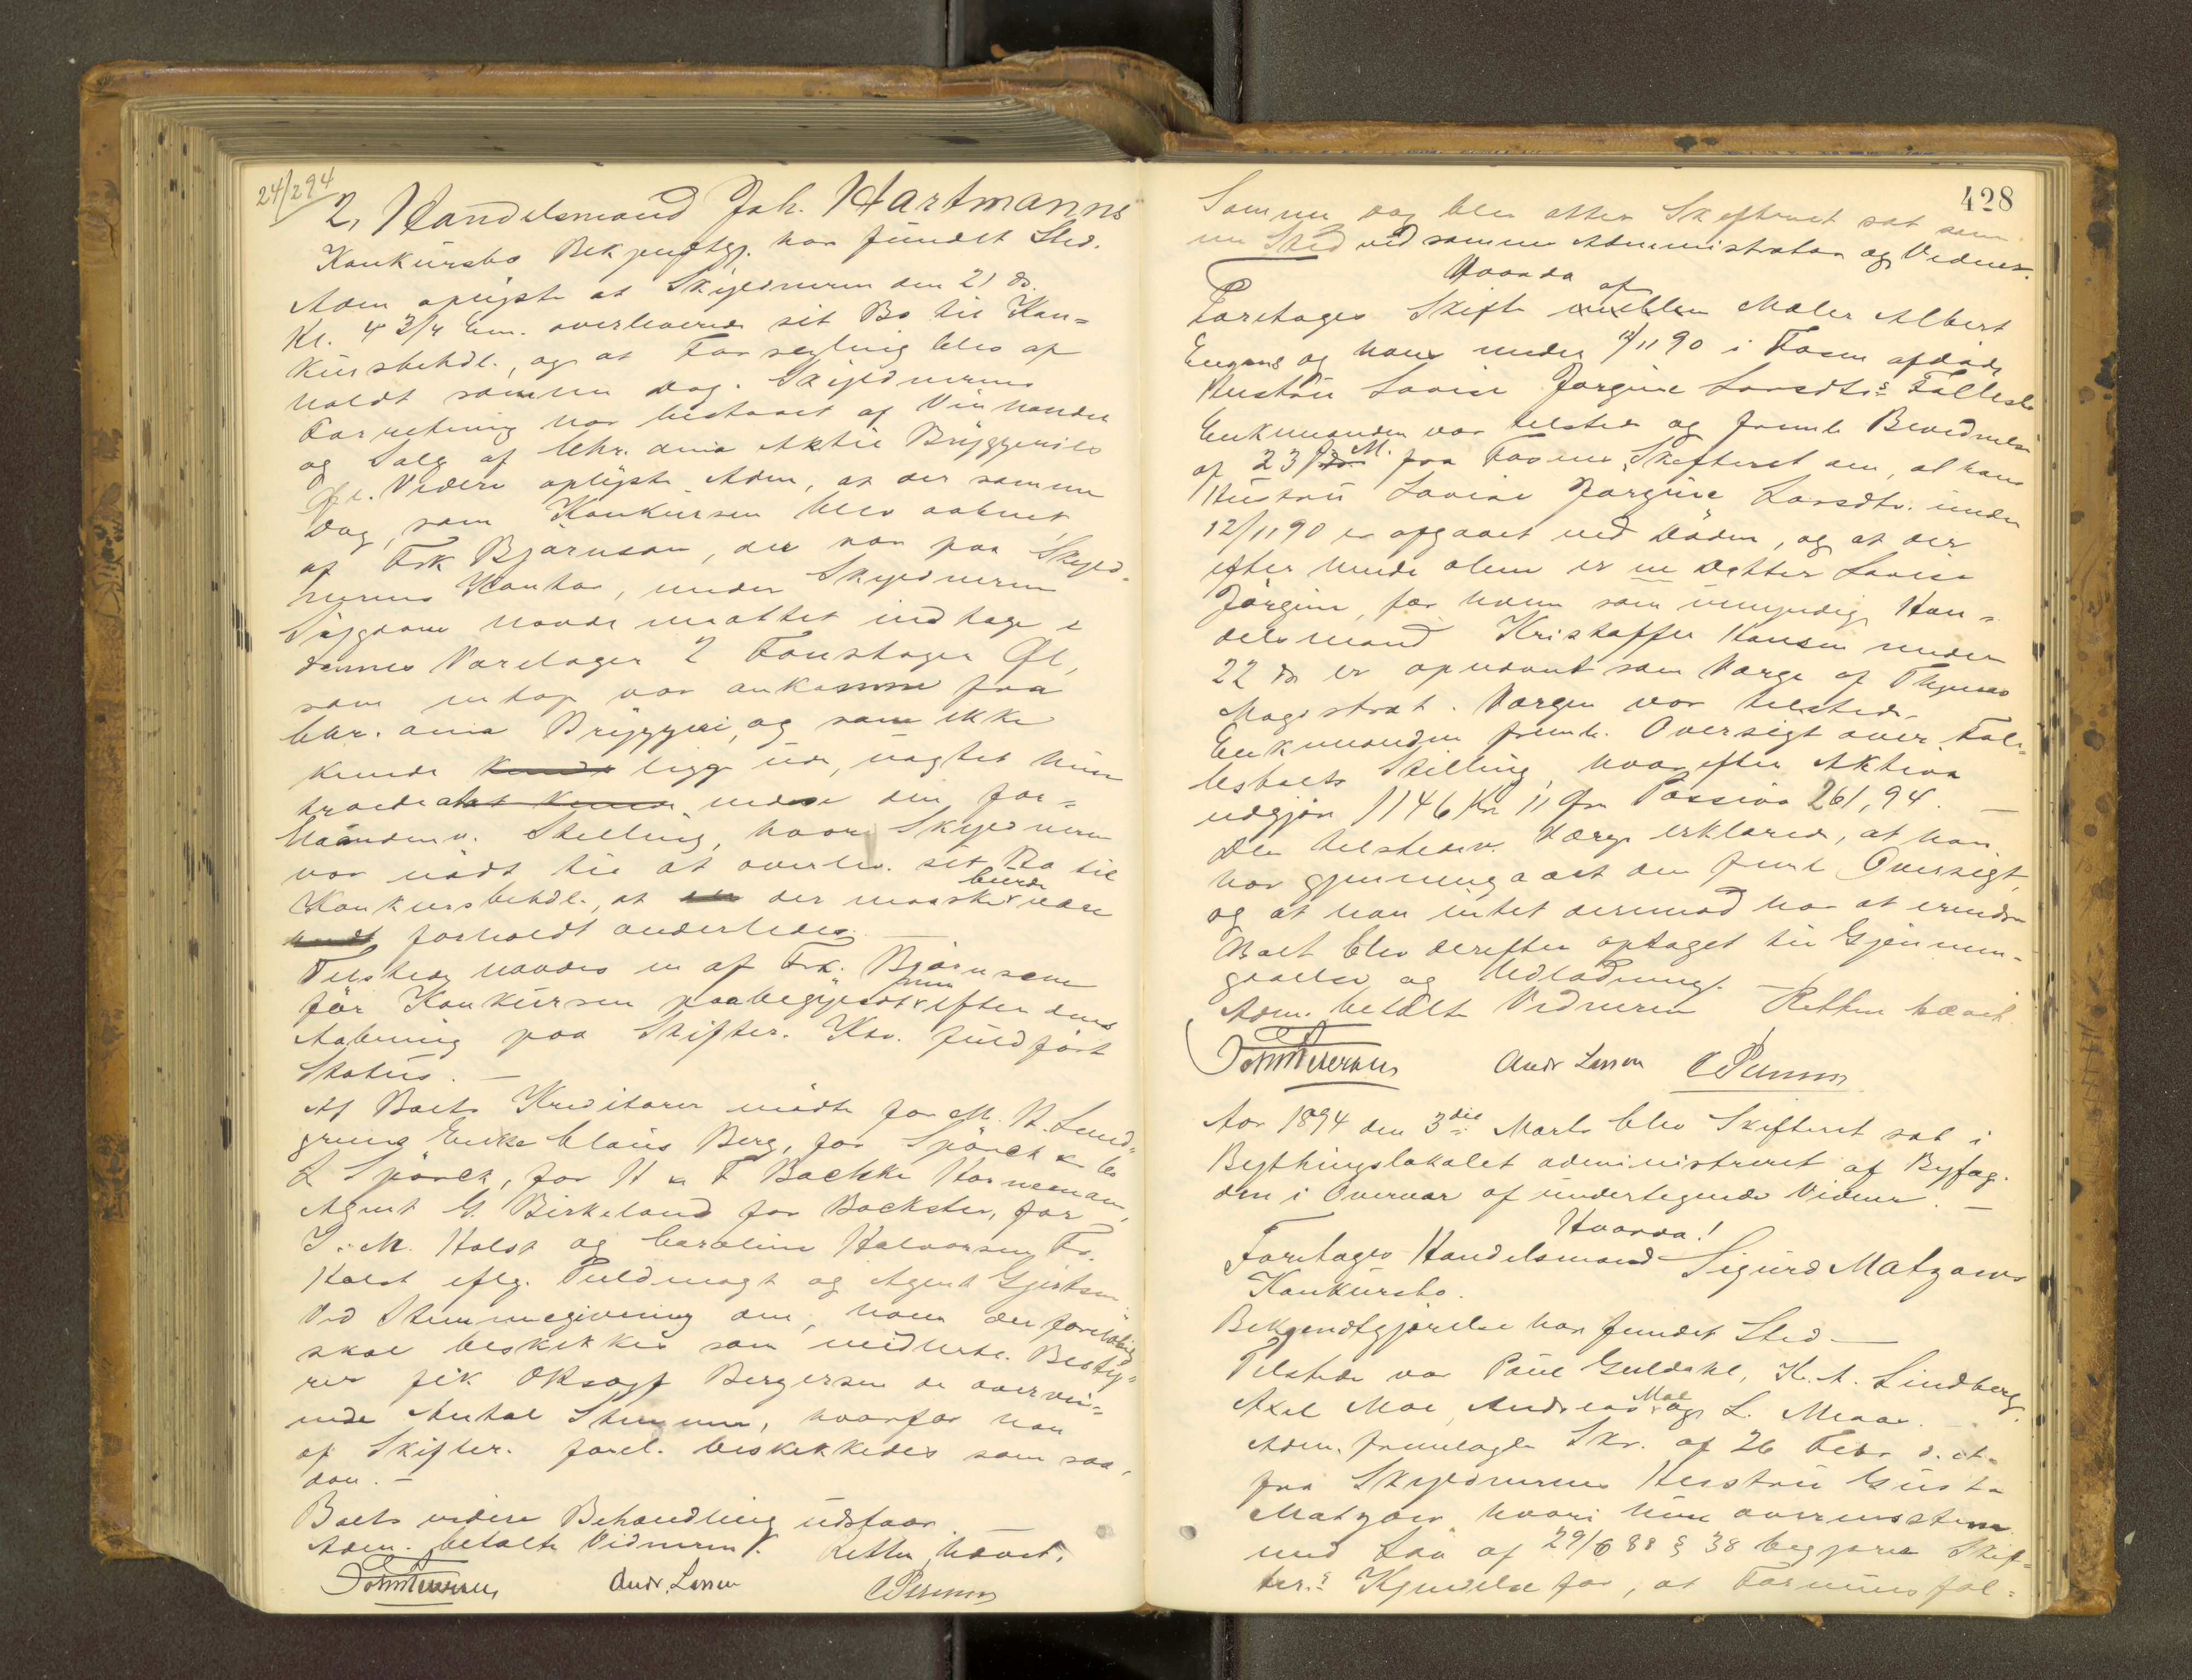 24/2 94
2, Handelsmand Joh. Hartmanns
Konkursbo Bekjendtgj. har fundet Sted.
Adm oplyste at Skyldneren den 21 ds.
Kl. 4 3/4 Em. overleverede sit Bo til Kon=
kursbehdl., og at Forsegling blev af
holdt samme Dag. Skyldnerens
Forretning har bestaaet af Vinhandel
og Salg af Chr.ania Aktie Bryggeriets
Øl. Videre oplyste Adm, at der samme
Dag, som Konkursen blev aabnet
af Frk Bjørnson, der var paa Skyld-
nerens Kontor, under Skyldnerens
Sygdom havde maattet indtage i
dennes Varelager 2 Foustager Øl,
som netop var ankomne fra
Chr.ania Bryggeri, og som ikke
kunde kunde ligge ude, uagtet hun
troede at
Haanden v. Stilling, hvor Skyldneren
var nødt til at overlev. sit Bo til
Konkursbehdl., at der maaske burde være
forholdt anderledes. —
Tilstede havdes en af Frk. Bjørnson
før Konkursen paabegyndt men efter dens
Aabning paa Skifter. Ktr. fuldført
Status. —
Af Boets Kreditorer mødte for M. H. Lund-
greens Enke Claus Berg, for Spørck & Co
L Spørck, for H & F Bachke Hornemann,
Agent G. Birkeland for Backster, for
I. M. Holst og Caroline Halvorsen Fr.
Holst eflg. Fuldmagt og Agent Gjertsen.
Ved Stemmegivning om, hvem der foreløbig
skal beskikkes som midlert. Besty-
rer fik OKsagf Bergersen de overvei-
ende Antal Stemmer, hvorfor han
af Skifter. forel. beskikkedes som saa-
dan. —
Boets videre Behandling udstaar
Adm. betalte Vidnerne. Retten hævet.
Andr. Larsen

428
Samme Dag blev atter Skifteret sat sam
me Sted ved samme Administrator og Vidner.
Hvorda
Foretages Skifte mellem af Maler Albert
Engens og hans under 12/11 90 i Fosen afdøde
Hustru Lovise Jørgine Larsdtr.s Fællesbo
Enkemanden var tilstede og freml. Bevidnelse
af 23 ds. M. fra Fosens Skifteret om, at hans
Hustru Lovise Jørgine Larsdtr. under
12/11 90 er afgaaet ved Døden, og at der
efter hende alene er en Datter Lovise
Jørgine, for hvem som umyndig Han-
delsmand Kristoffer Hansen under
22 ds er opnævnt som Værge af Thjems
Magistrat. Værgen var tilstede.
Enkemanden freml. Oversigt over Fæl-
lesboets Stilling, hvorefter Aktiva
udgjør 1146 Kr 11 Øre Passiva 261,94. —
Den tilstedev. Værge erklærede, at han
har gjennemgaaet den freml Oversigt,
og at han intet derimod har at erindre
Boet blev derefter optaget til Gjennem-
gaaelse og Udlodning. —
Adm. betalte Vidnerne Retten hævet.
Andr Larsen

Aar 1894 den 3die Marts blev Skifteret sat i
Bythingslokalet administreret af Byfog-
den i Overvær af undertegnede Vidner. —
Hvorda!
Foretages Handelsmand Sigurd Matzows
Konkursbo.
Bekjendtgjørelse har fundet Sted —
Tilstede var Paul Guldahl, K. A. Lindberg,
Axel Moe, Andreas Moe og L. Moar.
Adm. fremlagde Skr. af 26 Febr d. A.
fra Skyldnerens Hustru Gusta
Matzow hvori hun overensstem
med Lov af 29/6 88 § 38 begjærer Skif-
ter.s Kjendelse for, at Formuesfæl-